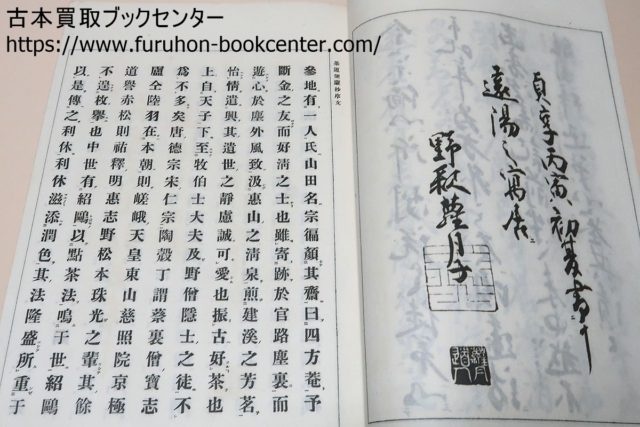 古本買取ブックセンター
https://www.furuhon-bookcenter.com/
貞享丙寅初夏書于
遠陽之寓居
茶道便蒙抄序文
參地有一人氏山田名宗徧顏其齋曰四方菴予
斷金之友而好清之士也雖寄跡於官路塵裏而
遊心於塵外風致汲惠山之清泉煎建溪之芳茗
怡情遣興其遺世之靜慮誠可愛也振古好茶也
上自天子下至牧伯士大夫及野僧隱士之徒不
爲不多矣唐德宗宋仁宗陶穀丁謂蔡襄僧寶志
盧全陸羽在本朝則嵯峨天皇東山慈照院京極
道譽赤松則祐釋明惠志野松本珠光之輩其餘
不遑枚擧也中世有紹鷗以點茶法鳴于世紹鷗
以是傳之利休利休滋添潤色其法隆盛所重于